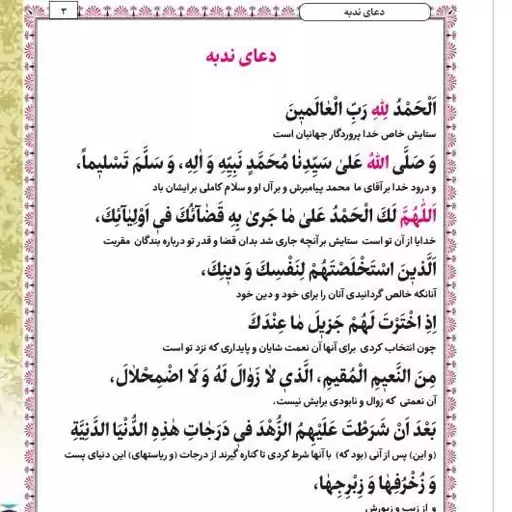 ۳
دعای ندبه
دعای ندبه
اَلْحَمْدُ لِلّهِ رَبِّ الْعٰالَمينَ
ستایش خاص خدا پروردگار جهانیان است
وَ صَلَّی اللهُ عَلیٰ سَیِّدِنٰا مُحَمَّدٍ نَبِیِّهِ وَ اٰلِهِ، وَ سَلَّمَ تَسْلیماً،
و درود خدا بر آقای ما محمد پیامبرش و بر آل او و سلام کاملی بر ایشان باد
اَللّٰهُمَّ لَكَ الْحَمْدُ عَلیٰ مٰا جَریٰ بِهِ قَضٰآئُكَ في اَوْلِیٰآئِكَ،
خدایا از آن تو است ستایش بر آنچه جاری شد بدان قضا و قدر تو درباره بندگان مقربت
اَلَّذینَ اسْتَخْلَصْتَهُمْ لِنَفْسِكَ وَ دینِكَ،
آنانکه خالص گردانیدی آنان را برای خود و دین خود
اِذِ اخْتَرْتَ لَهُمْ جَزیلَ مٰا عِنْدَكَ
چون انتخاب کردی برای آنها آن نعمت شایان و پایداری که نزد تو است
مِنَ النَّعیمِ الْمُقیمِ، الَّذي لٰا زَوٰالَ لَهُ وَ لَا اضْمِحْلٰالَ،
آن نعمتی که زوال و نابودی برایش نیست،
بَعْدَ اَنْ شَرَطْتَ عَلَیْهِمُ الزُّهْدَ في دَرَجٰاتِ هٰذِهِ الدُّنْیَا الدَّنِیَّةِ
(و این) پس از آنی (بود که) با آنها شرط کردی تا کناره گیرند از درجات (و ریاستهای) این دنیای پست
وَ زُخْرُفِهٰا وَ زِبْرِجِهٰا،
و از زیب و زیورش